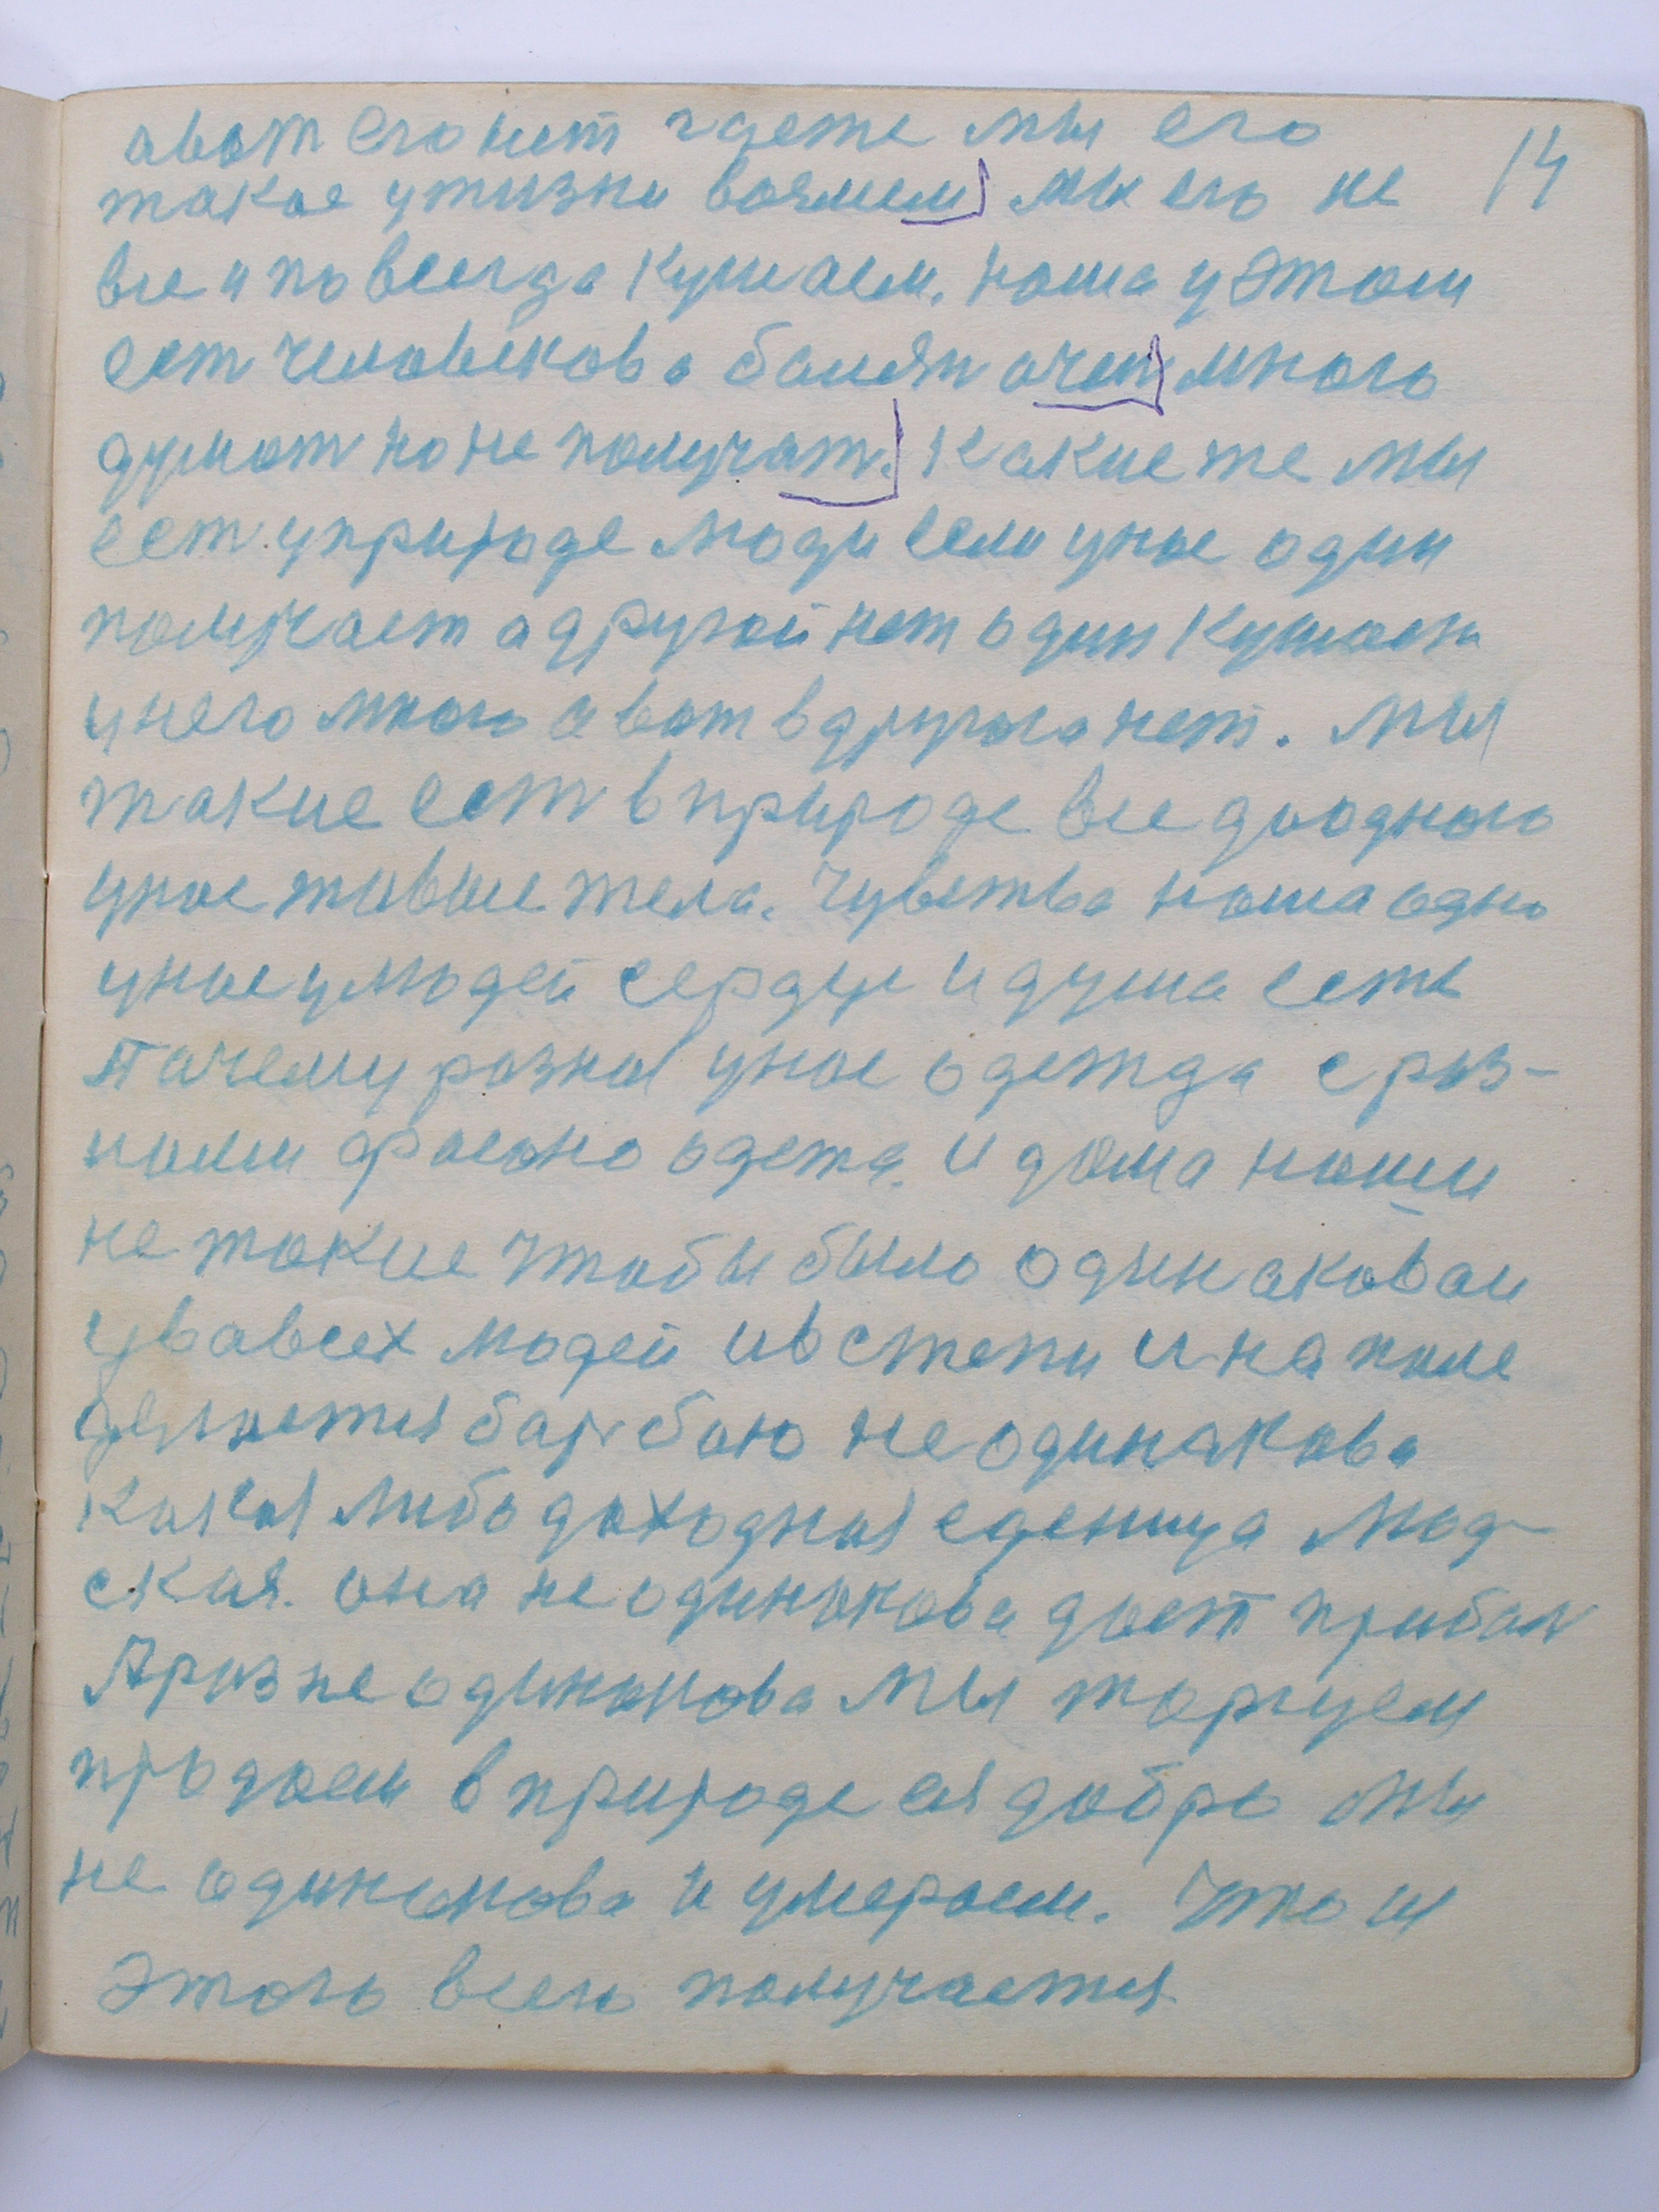 авот его нет гдеже мы его 14
такое ужизни возмем мы его не
все и по всегда кушаем. наша у этом
ест человекова балезн очен много
думат но не получат. Какие же мы
ест. уприроде люди если унас один
получает адругой нет один кушает
унего много авот вдругога нет. Мы
такие ест вприроде все доодного
унас живые тела. Чувства наша одно
унас улюдей сердце идуша есть
Пачему разная унас одежда с раз-
ными фасоно одета. и дома наши
не такие чтобы было одинаковаи
увавсех людей ивстепи и на поле
делается барбою неодинакова
какая либо даходная еденица люд-
ская. она неодинакова дает прибал
Араз неодинакова мы торгуем
продаем вприроде ея добро мы
не одинакова и умераем. Что и
этого всего получается